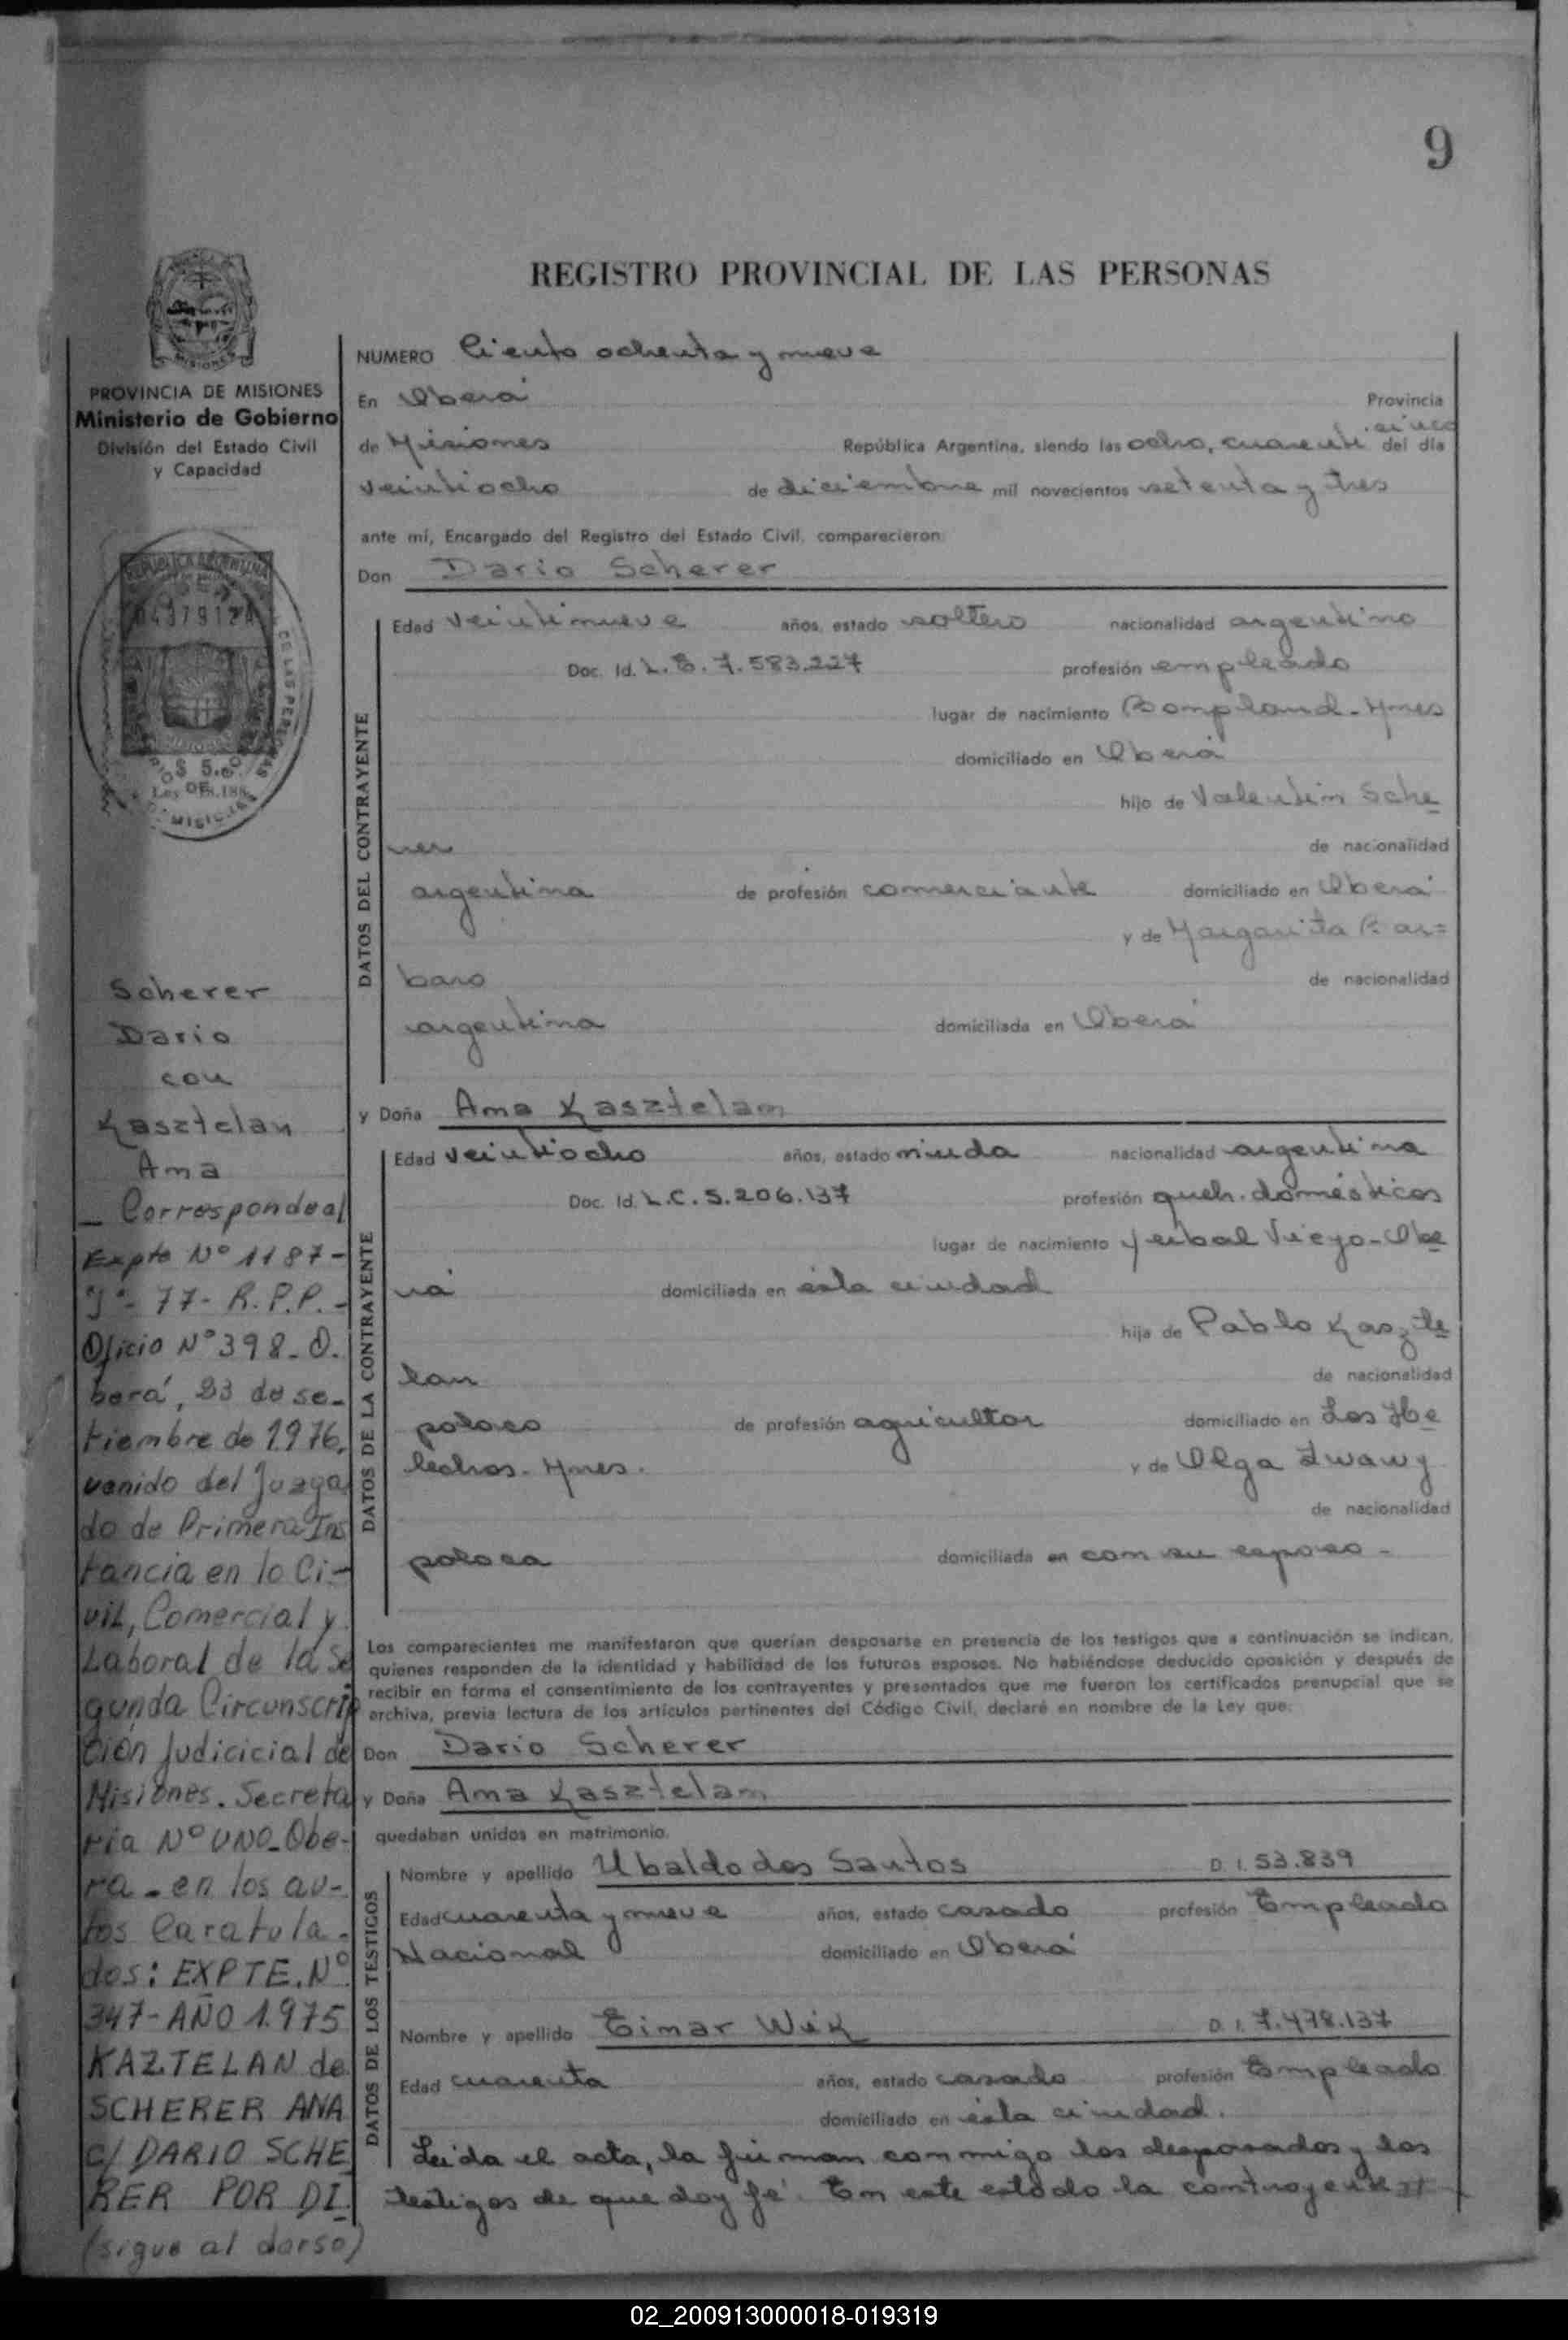 9
REGISTRO PROVINCIAL DE LAS PERSONAS
PROVINCIA DE MISIONES
Ministerio de Gobierno
División del Estado Civil
y Capacidad
REPUBLICA ARGENTINA
$ 5.00
MISIONES
Scherer
Dario
con
Kasztelan
Ana
- Corresponde al
Expte Nº 1187-
"J"- 77- R.P.P.-
Oficio Nº 398_O.
berá, 23 de se-
tiembre de 1.976,
venido del Juzga
do de Primera Ins
tancia en lo Ci-
vil, Comercial y
Laboral de la Se
gunda Circunscrip
ción Judicicial de
Misiones. Secreta
ria Nº UNO_Obe-
ra - en los au-
tos Caratula-
dos: EXPTE. Nº
347- AÑO 1.975
KAZTELAN de
SCHERER ANA
C/ DARIO SCHE
RER POR DI_
(sigue al dorso)
NUMERO Ciento ochenta y nueve
En Oberá Provincia
de Misiones República Argentina, siendo las ocho, cuarenti cinco del día
veintiocho de diciembre mil novecientos setenta y tres
ante mí, Encargado del Registro del Estado Civil, comparecieron:
Don Dario Scherer
DATOS DEL CONTRAYENTE
Edad veintinueve años, estado soltero nacionalidad argentino
Doc. Id. L.E. 7.583.227 profesión empleado
lugar de nacimiento Bompland - Mnes
domiciliado en Oberá
hijo de Valentin Sche
rer de nacionalidad
argentina de profesión comerciante domiciliado en Oberá
y de Margarita Bar=
baro de nacionalidad
argentina domiciliada en Oberá
y Doña Ana Kasztelan
DATOS DE LA CONTRAYENTE
Edad veintiocho años, estado viuda nacionalidad argentina
Doc. Id. L.C. 5.206.137 profesión queh. domésticos
lugar de nacimiento Yerbal Viejo - Obe
rá domiciliada en ésta ciudad
hija de Pablo Kaszte
lan de nacionalidad
polaco de profesión agricultor domiciliado en Los He
lechos - Mnes. y de Olga Iwawy
de nacionalidad
polaca domiciliada en con su esposo -
Los comparecientes me manifestaron que querían desposarse en presencia de los testigos que a continuación se indican,
quienes responden de la identidad y habilidad de los futuros esposos. No habiéndose deducido oposición y después de
recibir en forma el consentimiento de los contrayentes y presentados que me fueron los certificados prenupcial que se
archiva, previa lectura de los artículos pertinentes del Código Civil, declaré en nombre de la Ley que:
Don Dario Scherer
y Doña Ana Kasztelan
quedaban unidos en matrimonio.
DATOS DE LOS TESTIGOS
Nombre y apellido Ubaldo dos Santos D. I. 53.839
Edad cuarenta y nueve años, estado casado profesión Empleado
Nacional domiciliado en Oberá
Nombre y apellido Einar Wik D. I. 7.478.137
Edad cuarenta años, estado casado profesión Empleado
domiciliado en ésta ciudad.
Leida el acta, la firman conmigo los desposados y los
testigos de que doy fé. En este estado la contrayente
02_200913000018-019319